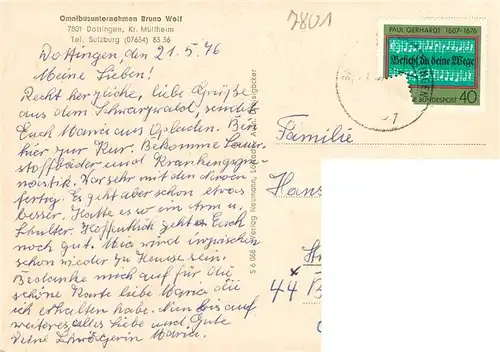 Omnibusunternehmen Bruno Wolf
7801 Dottingen, Kr. Müllheim
Tel. Sulzburg (07634) 83 36
7801
PAUL GERHARDT 1607-1676
Befiehl du deine Wege
BUNDESPOST 40
Dottingen, den 21.5.76
Meine Lieben!
Recht herzliche, liebe Grüße
aus dem Schwarzwald, sendet
Euch Maria aus Opladen. Bin
hier zur Kur. Bekomme Sauer-
stoffbäder und Krankengym-
nastik. War sehr mit den Nerven
fertig. Es geht aber schon etwas
besser. Hatte es so im Arm u.
Schulter. Hoffentlich geht es Euch
noch gut. Mia wird inzwischen
schon wieder zu Hause sein.
Bedanke mich auf für die
schöne Karte liebe Maria die
ich erhalten habe. Nun bis auf
weiteres, alles Liebe und Gute
Deine Schwägerin Maria.
Familie
Hans
44
S 6 068 Verlag Neumann, Lörrach